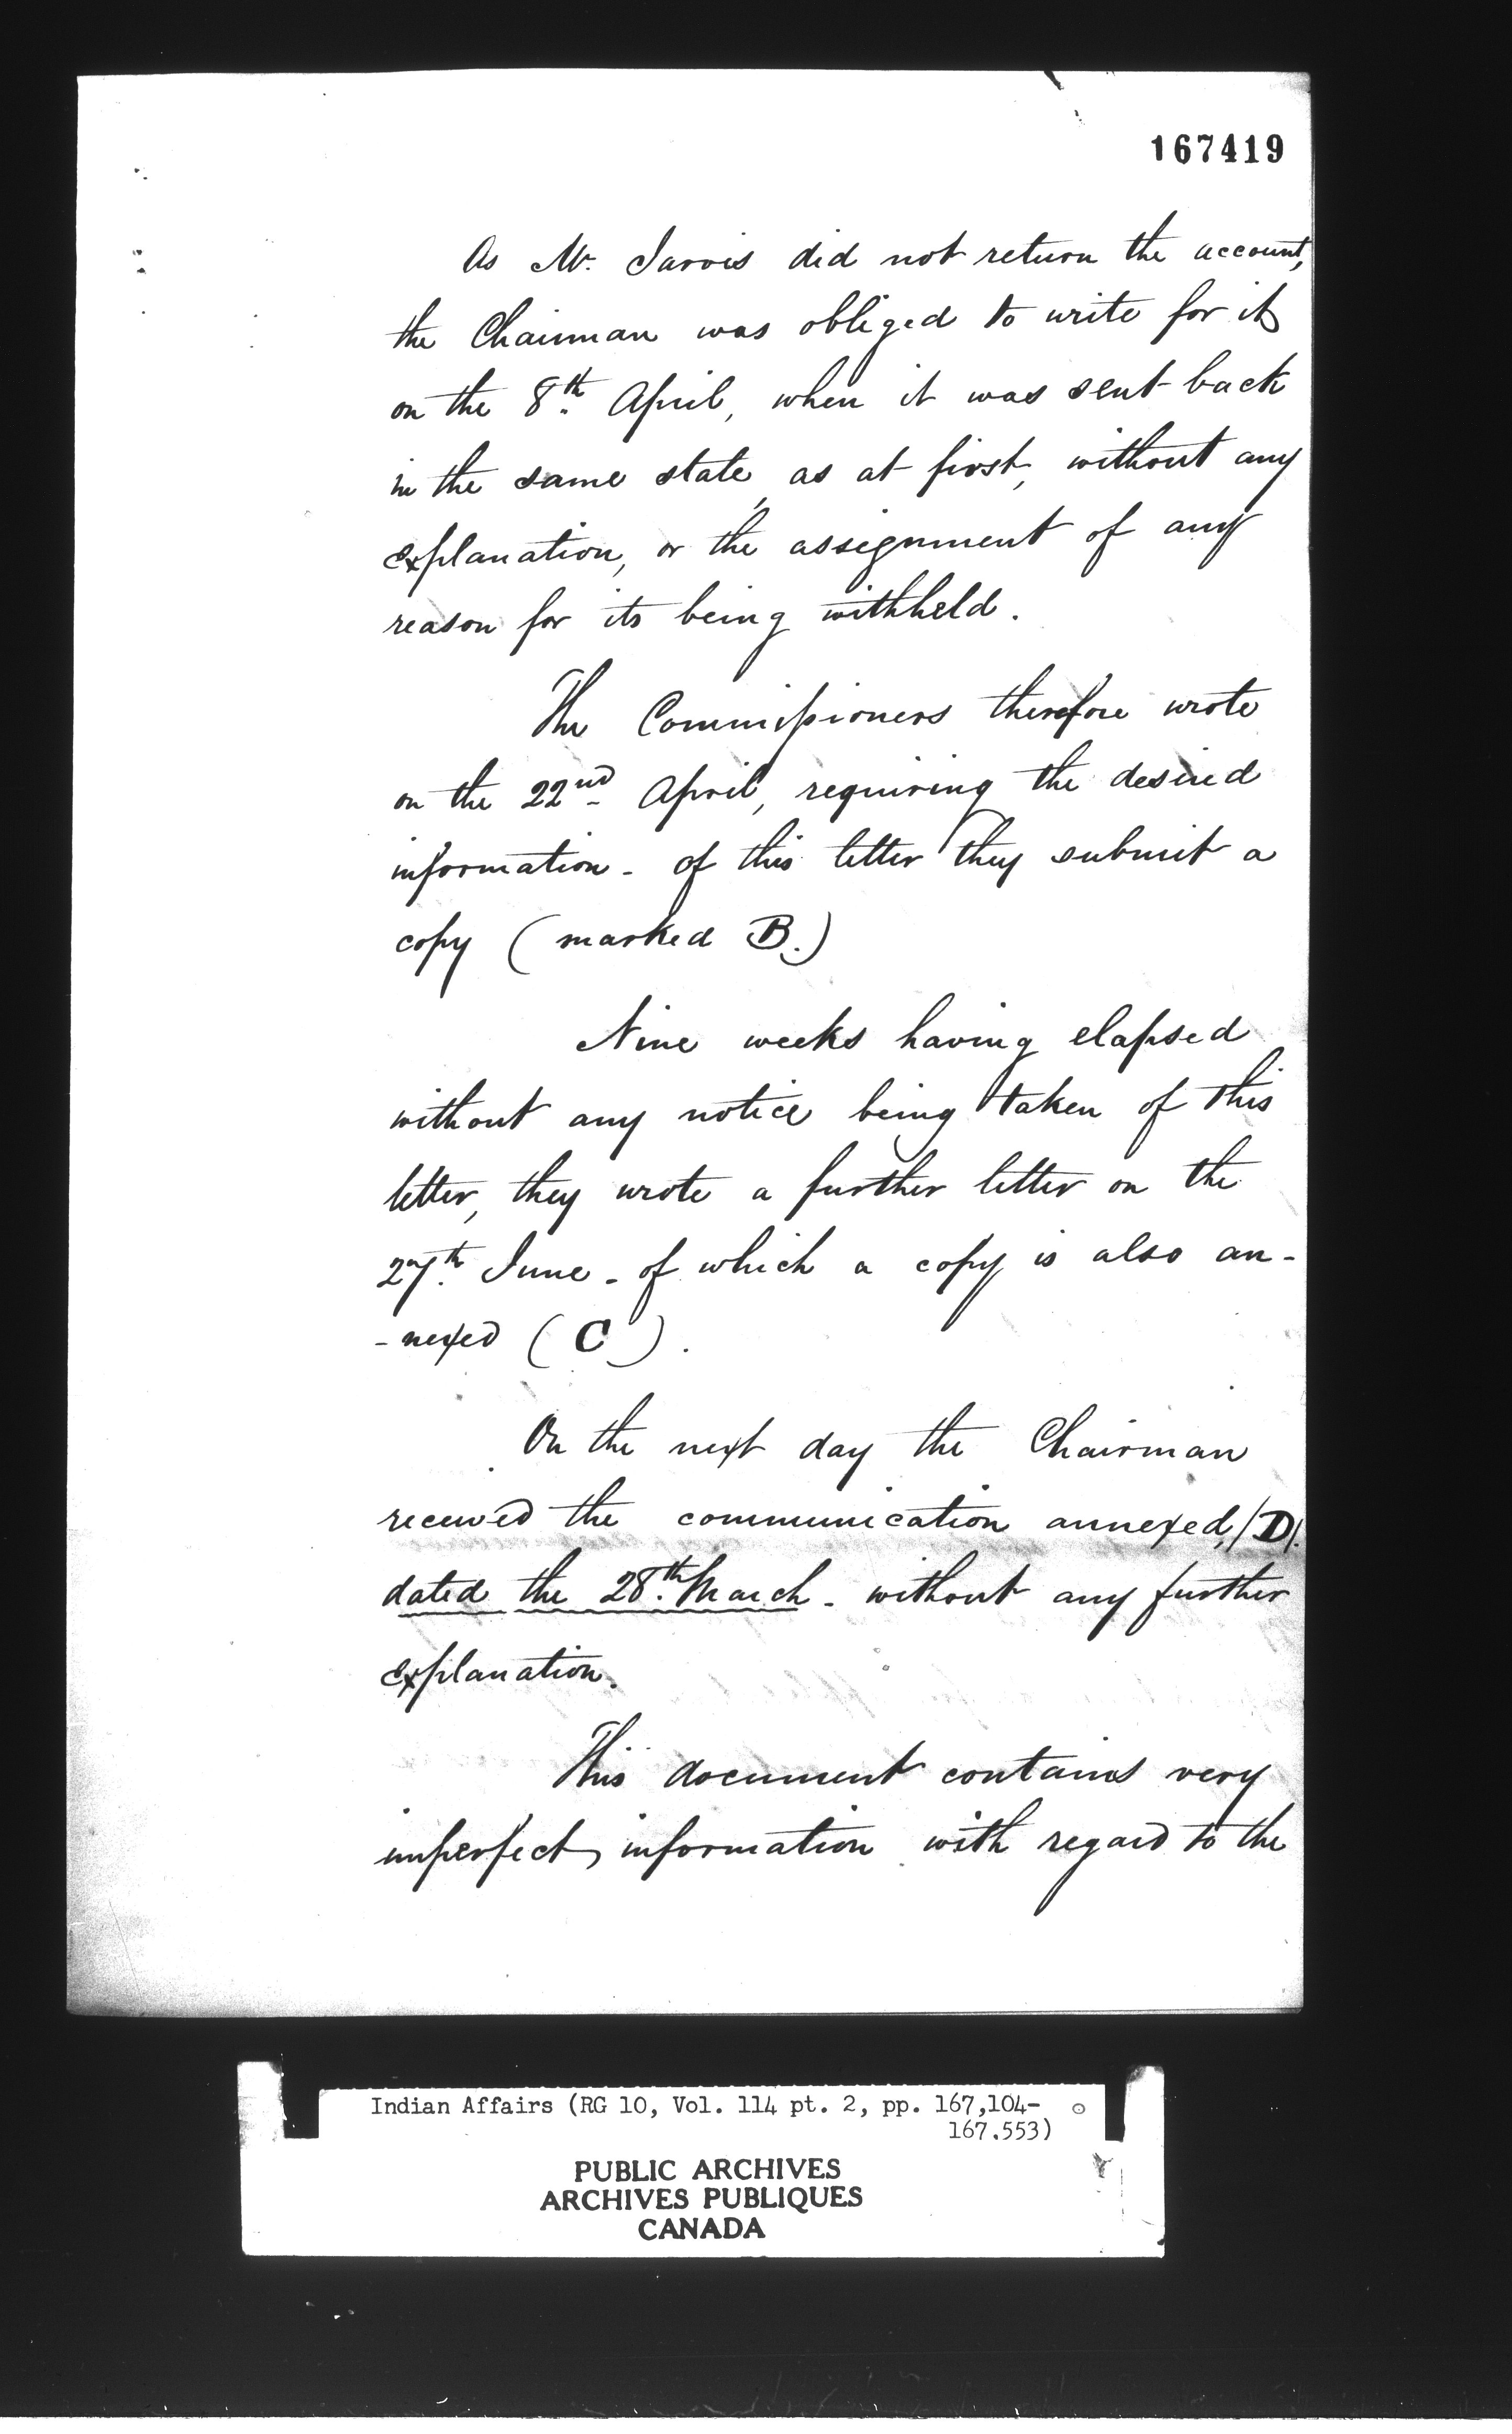 167419
As Mr. Jarvis did not return the account,
the Chairman was obliged to write for it
on the 8th April, when it was sent back
in the same state, as at first, without any
explanation, or the assignment of any
reason for its being withheld.
The Commissioners therefore wrote
on the 22nd April, requiring the desired
information - of this letter they submit a
copy (marked B.)
Nine weeks having elapsed
without any notice being taken of this
letter, they wrote a further letter on the
27th June - of which a copy is also an-
-nexed (C).
On the next day the Chairman
received the communication annexed, (D).
dated the 28th March - without any further
explanation.
This document contains very
imperfect, information with regard to the
Indian Affairs (RG 10, Vol. 114 pt. 2, pp. 167,104-
167.553)
PUBLIC ARCHIVES
ARCHIVES PUBLIQUES
CANADA